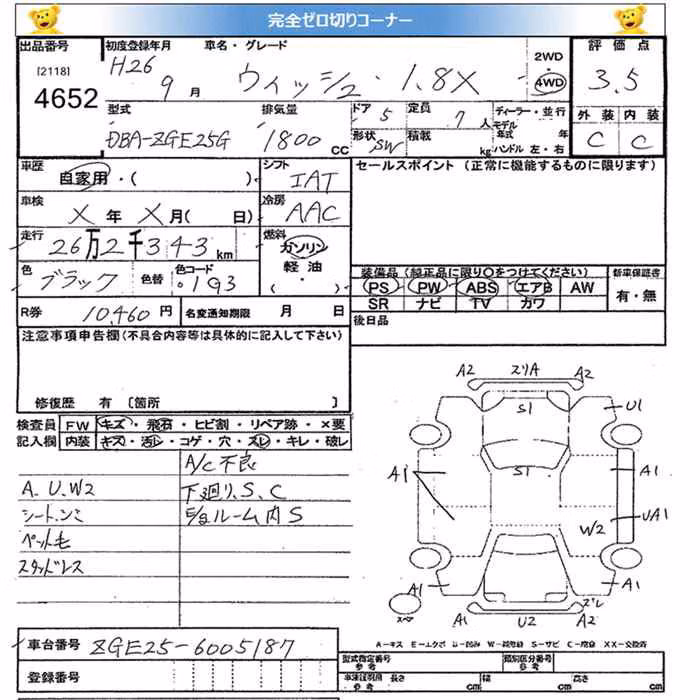 完全ゼロ切りコーナー
出品番号 初度登録年月 車名・グレード 評価点
[2118] H26 9月 ウィッシュ・1.8X 2WD・4WD 3.5
4652
型式 排気量 ドア 5 定員 7人 ディーラー・並行 外装 内装
DBA-ZGE25G 1800cc 形状 SW 積載 kg モデル年式 年 ハンドル 左・右 C C
車歴 自家用・( ) シフト IAT セールスポイント (正常に機能するものに限ります)
車検 X年 X月( 日) 冷房 AAC
走行 26万2千343km 燃料 ガソリン・軽油・( )
色 ブラック 色替 色コード 193 装備品(純正品に限り○をつけてください) 新車保証書
PS PW ABS エアB AW 有・無
SR ナビ TV カワ
R券 10,460円 名変通知期限 月 日 後日品
注意事項申告欄(不具合内容等は具体的に記入して下さい)
修復歴 有 〔箇所
検査員 FW キズ・飛石・ヒビ割・リペア跡・×要
記入欄 内装 キズ・汚レ・コゲ・穴・スレ・キレ・破レ
A/C不良
A、U、W2 下廻り、S、C
ルーム内S
ペット毛
スタッドレス
A2 スリA A2
S1 U1
A1 S1 A1
UA1
W2
A1 A1
スペア A1 U2 A2 ズレ
A-キズ E-エクボ
車台番号 ZGE25-6005187
型式指定番号 参考 類別区分番号 参考
登録番号 長さ cm 幅 cm 高さ cm